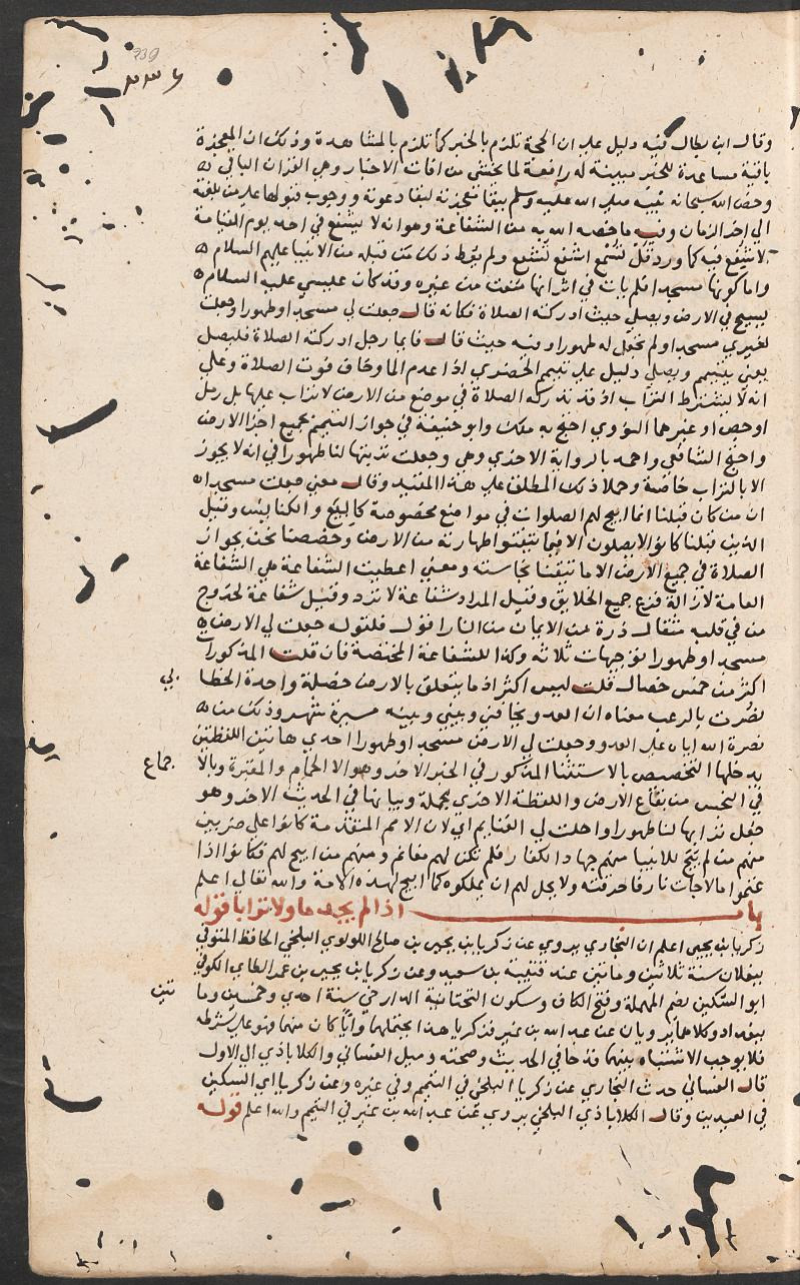 ٢٣٦
239
وقال ابن بطال فيه دليل على ان الحجة تلزم بالخبر كما تلزم بالمشاهدة وذلك ان المعجزة
باقية مساعدة للخبر مبينة له رافعة لما يختشى من افات الاخبار وهي القران الباقي
وخص الله سبحانه نبيه صلى الله عليه وسلم ببقا معجزته لبقا دعوته ووجوب قبولها على من بلغته
الى اخر الزمان وفيه ما خصه الله به من الشفاعة وهو انه لا يشفع في احد يوم القيامة
الا شفع فيه كما ورد قل تسمع اشفع تشفع ولم يعط ذلك من قبله من الانبيا عليهم السلام
واما كونها مسجدا فلم يات في اثر انها منعت من غيره وقد كان عيسى عليه السلام
يسيح في الارض ويصلي حيث ادركته الصلاة فكانه قال جعلت لي مسجدا وطهورا وجعلت
لغيري مسجدا ولم تجعل له طهورا وفيه حيث قال فايما رجل ادركته الصلاة فليصل
يعني يتيمم ويصلي دليل على تيمم الحضري اذا عدم الما وخاف فوت الصلاة وعلى
انه لا يشترط التراب اذ قد تدركه الصلاة في موضع من الارض لا تراب عليها بل رمل
او جص او غيرهما النووي احتج به مالك وابو حنيفة في جواز التيمم بجميع اجزا الارض
واحتج الشافعي واحمد بالرواية الاخرى وهي وجعلت تربتها لنا طهورا في انه لا يجوز
الا بالتراب خاصة وحملا ذلك المطلق على هذا المقيد وقال معنى جعلت مسجدا
ان من كان قبلنا انما ابيح لهم الصلوات في مواضع مخصوصة كالبيع والكنايس وقيل
الذين قبلنا كانوا لا يصلون الا فيما تيقنوا طهارته من الارض وخصصنا نحن بجواز
الصلاة في جميع الارض الا ما تيقنا نجاسته ومعنى اعطيت الشفاعة هي الشفاعة
العامة لازالة فزع جميع الخلايق وقيل المراد شفاعة لا ترد وقيل شفاعة لخروج
من في قلبه مثقال ذرة من الايمان من النار اقول فلقوله جعلت لي الارض
مسجدا وطهورا توجيهات ثلاثة وكذا للشفاعة المختصة فان قلت المذكورات
اكثر من خمس خصال قلت ليس اكثر اذ ما يتعلق بالارض خصلة واحدة الخطا بي
نصرت بالرعب معناه ان العدو يخافني وبيني وبينه مسيرة شهر وذلك من
نصرة الله اياه على العدو وجعلت لي الارض مسجدا وطهورا احدى هاتين اللفظتين
يدخلها التخصيص بالاستثنا المذكور في الخبر الاخر وهو الا الحمام والمقبرة وبالا جماع
في النجس من بقاع الارض واللفظة الاخرى مجملة وبيانها في الحديث الاخر وهو
جعل ترابها لنا طهورا واحلت لي الغنايم اي لان الامم المتقدمة كانوا على ضربين
منهم من لم يبح للانبيا منهم جهاد الكفار فلم تكن لهم مغانم ومنهم من ابيح لهم فكانوا اذا
غنموا مالا جات نار فاحرقته ولا يحل لهم ان يملكوه كما ابيح لهذه الامة والله تعالى اعلم
باب اذا لم يجد ماء ولا ترابا قوله
زكريا بن يحيى اعلم ان البخاري يروي عن زكريا بن يحيى بن صالح اللولوي البلخي الحافظ المتوفى
ببغلان سنة ثلاثين وماتين عند قتيبة بن سعيد وعن زكريا بن يحيى بن عمر الطاي الكوفي
ابو السكين بضم المهملة وفتح الكاف وسكون التحتانية الدارخي سنة احدى وخمسين وما تين
ببغداد وكلاهما يرويان عن عبد الله بن نمير فزكريا هذا يحتملهما وايا كان منهما فهو على شرطه
فلا يوجب الاشتباه بينهما قدحا في الحديث وصحته وميل الغساني والكلاباذي الى الاول
قال الغساني حدث البخاري عن زكريا البلخي في التيمم وفي غيره وعن زكريا ابي السكين
في العيدين وقال الكلاباذي البلخي يروي عن عبد الله بن نمير في التيمم والله اعلم قوله